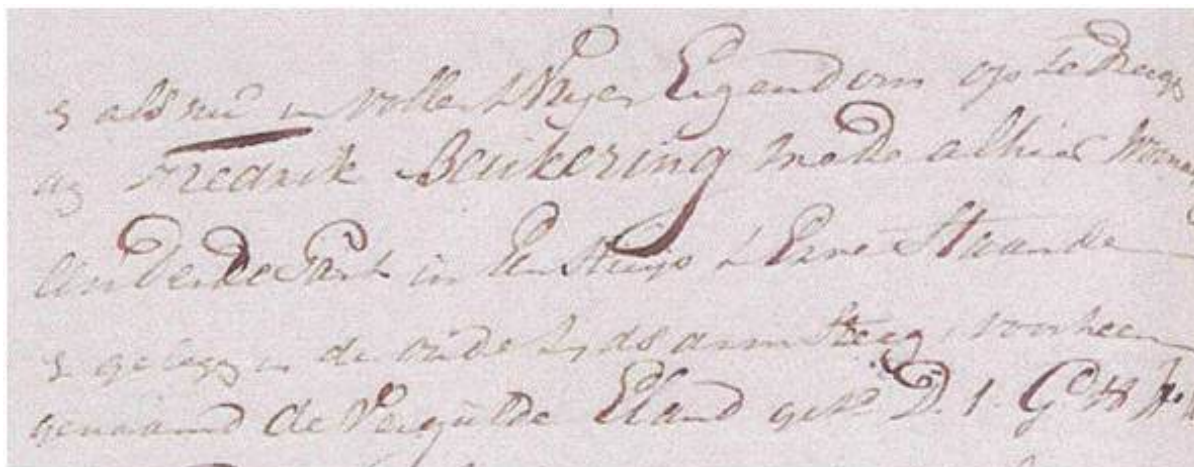 & als nu in vollen & Vrijen Eigendom op te draagen
aan Fredrik Beukering mede alhier woonen
een derde Part in een Huijs & Erve Staande
& gelegen in de oude Lydsarm steeg, voorheen
genaamd de Vergulde Eland get: D. 1. G